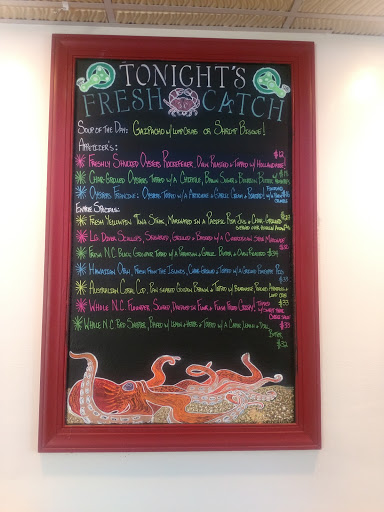 TONIGHT'S
FRESH CATCH
Soup of the Day: Gazpacho w/ Lump Crab or Shrimp Bisque!
Appetizer's:
Freshly Shucked Oysters Rockefeller, Oven Roasted & Topped w/ Hollandaise! $12
Char-Grilled Oysters Topped w/ A Chipotle, Brown Sugar & Bourbon Butter
Oysters Topped w/ A & Garlic Cream & Baked!
Entree Specials:
Fresh Yellowfin Tuna Steak, Marinated in a Pacific Rim Jus & Char-Grilled
Lg. Diver Scallops Skewered, Grilled & Basted w/ A Caribbean Jerk Marinade
Fresh N.C. Black Grouper Topped w/ A Parmesan & Garlic Butter & Oven Roasted $34
Hawaiian Opah Fresh From The Islands, Char-Grilled & Topped w/ A Grilled Pineapple $33
Australian Coral Cod, Pan Seared Golden Brown & Topped w/ Almonds &
Lump Crab
Whole N.C. Flounder, Scored, Dredged in Flour & Flash Fried Crispy! Topped $33
w/ Sweet Thai
Chili Sauce
Whole N.C. Red Snapper, Baked w/ Lemon & Herbs & Topped w/ A Caper, Lemon & Dill $33
Butter
$32